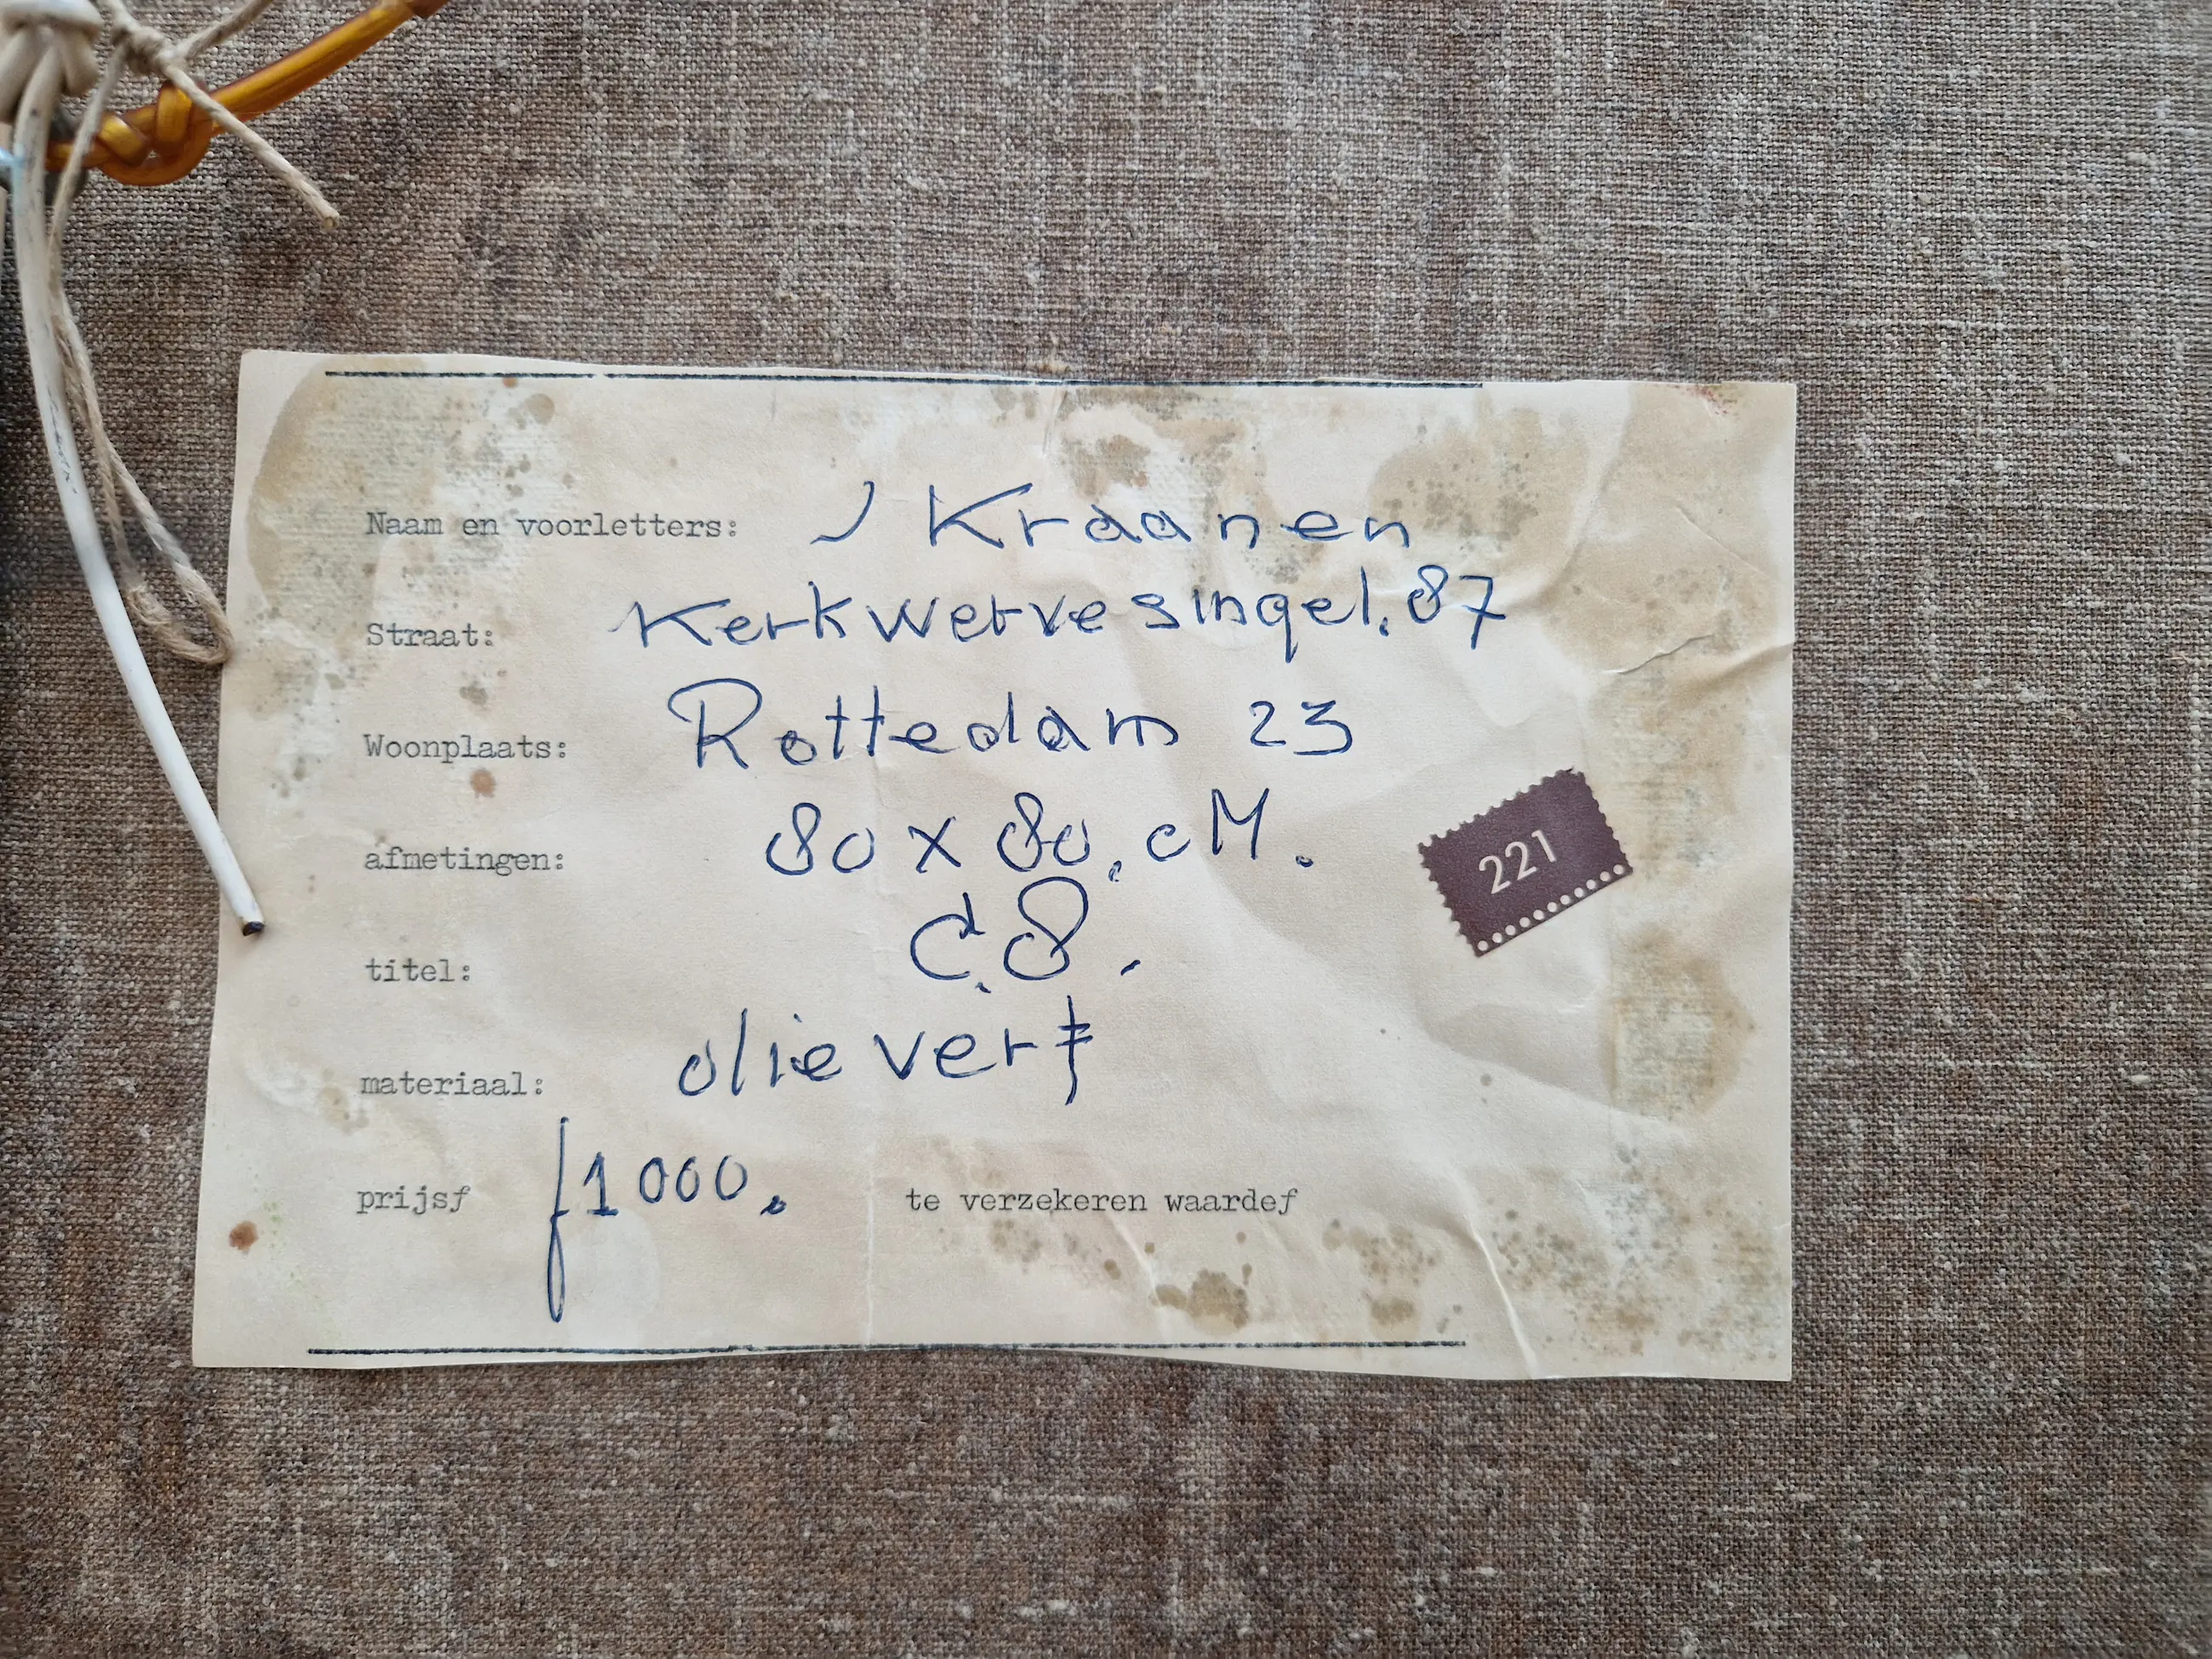 Naam en voorletters: J Kraanen
Straat: Kerkwervesingel.87
Woonplaats: Rottedam 23
afmetingen: 80 x 80. cM.
221
titel: C.8.
materiaal: olieverf
prijsf f1000. te verzekeren waardef